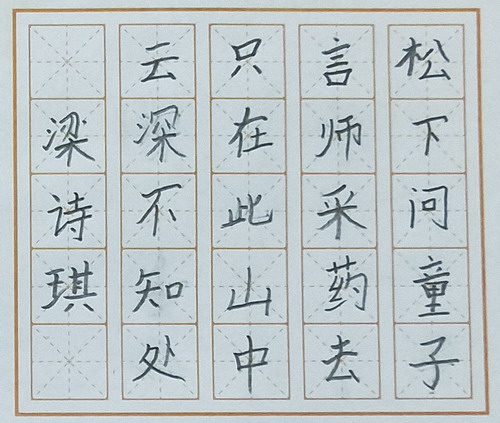 松下问童子
言师采药去
只在此山中
云深不知处
梁诗琪